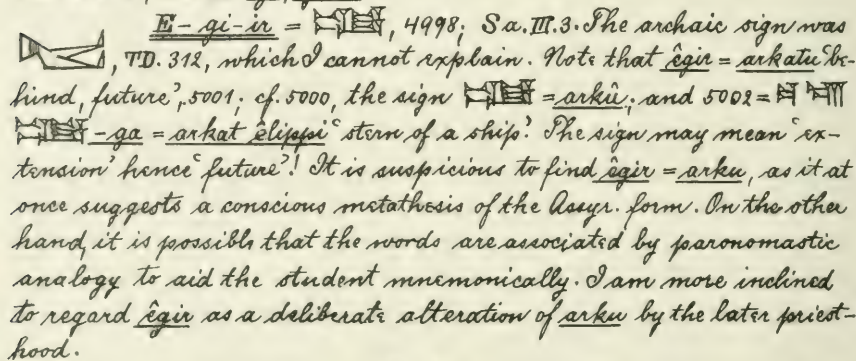 E-gi-ir = 𒂕, 4998; Sa. III. 3. The archaic sign was
, TD. 312, which I cannot explain. Note that êgir = arkatu ‘be-
hind, future’, 5001; cf. 5000, the sign 𒂕 = arkû; and 5002 =
𒂕-ga = arkat êlippi ‘stern of a ship’! The sign may mean ‘ex-
tension’ hence ‘future’! It is suspicious to find êgir = arku, as it at
once suggests a conscious metathesis of the Assyr. form. On the other
hand, it is possible that the words are associated by paronomastic
analogy to aid the student mnemonically. I am more inclined
to regard êgir as a deliberate alteration of arku by the later priest-
hood.